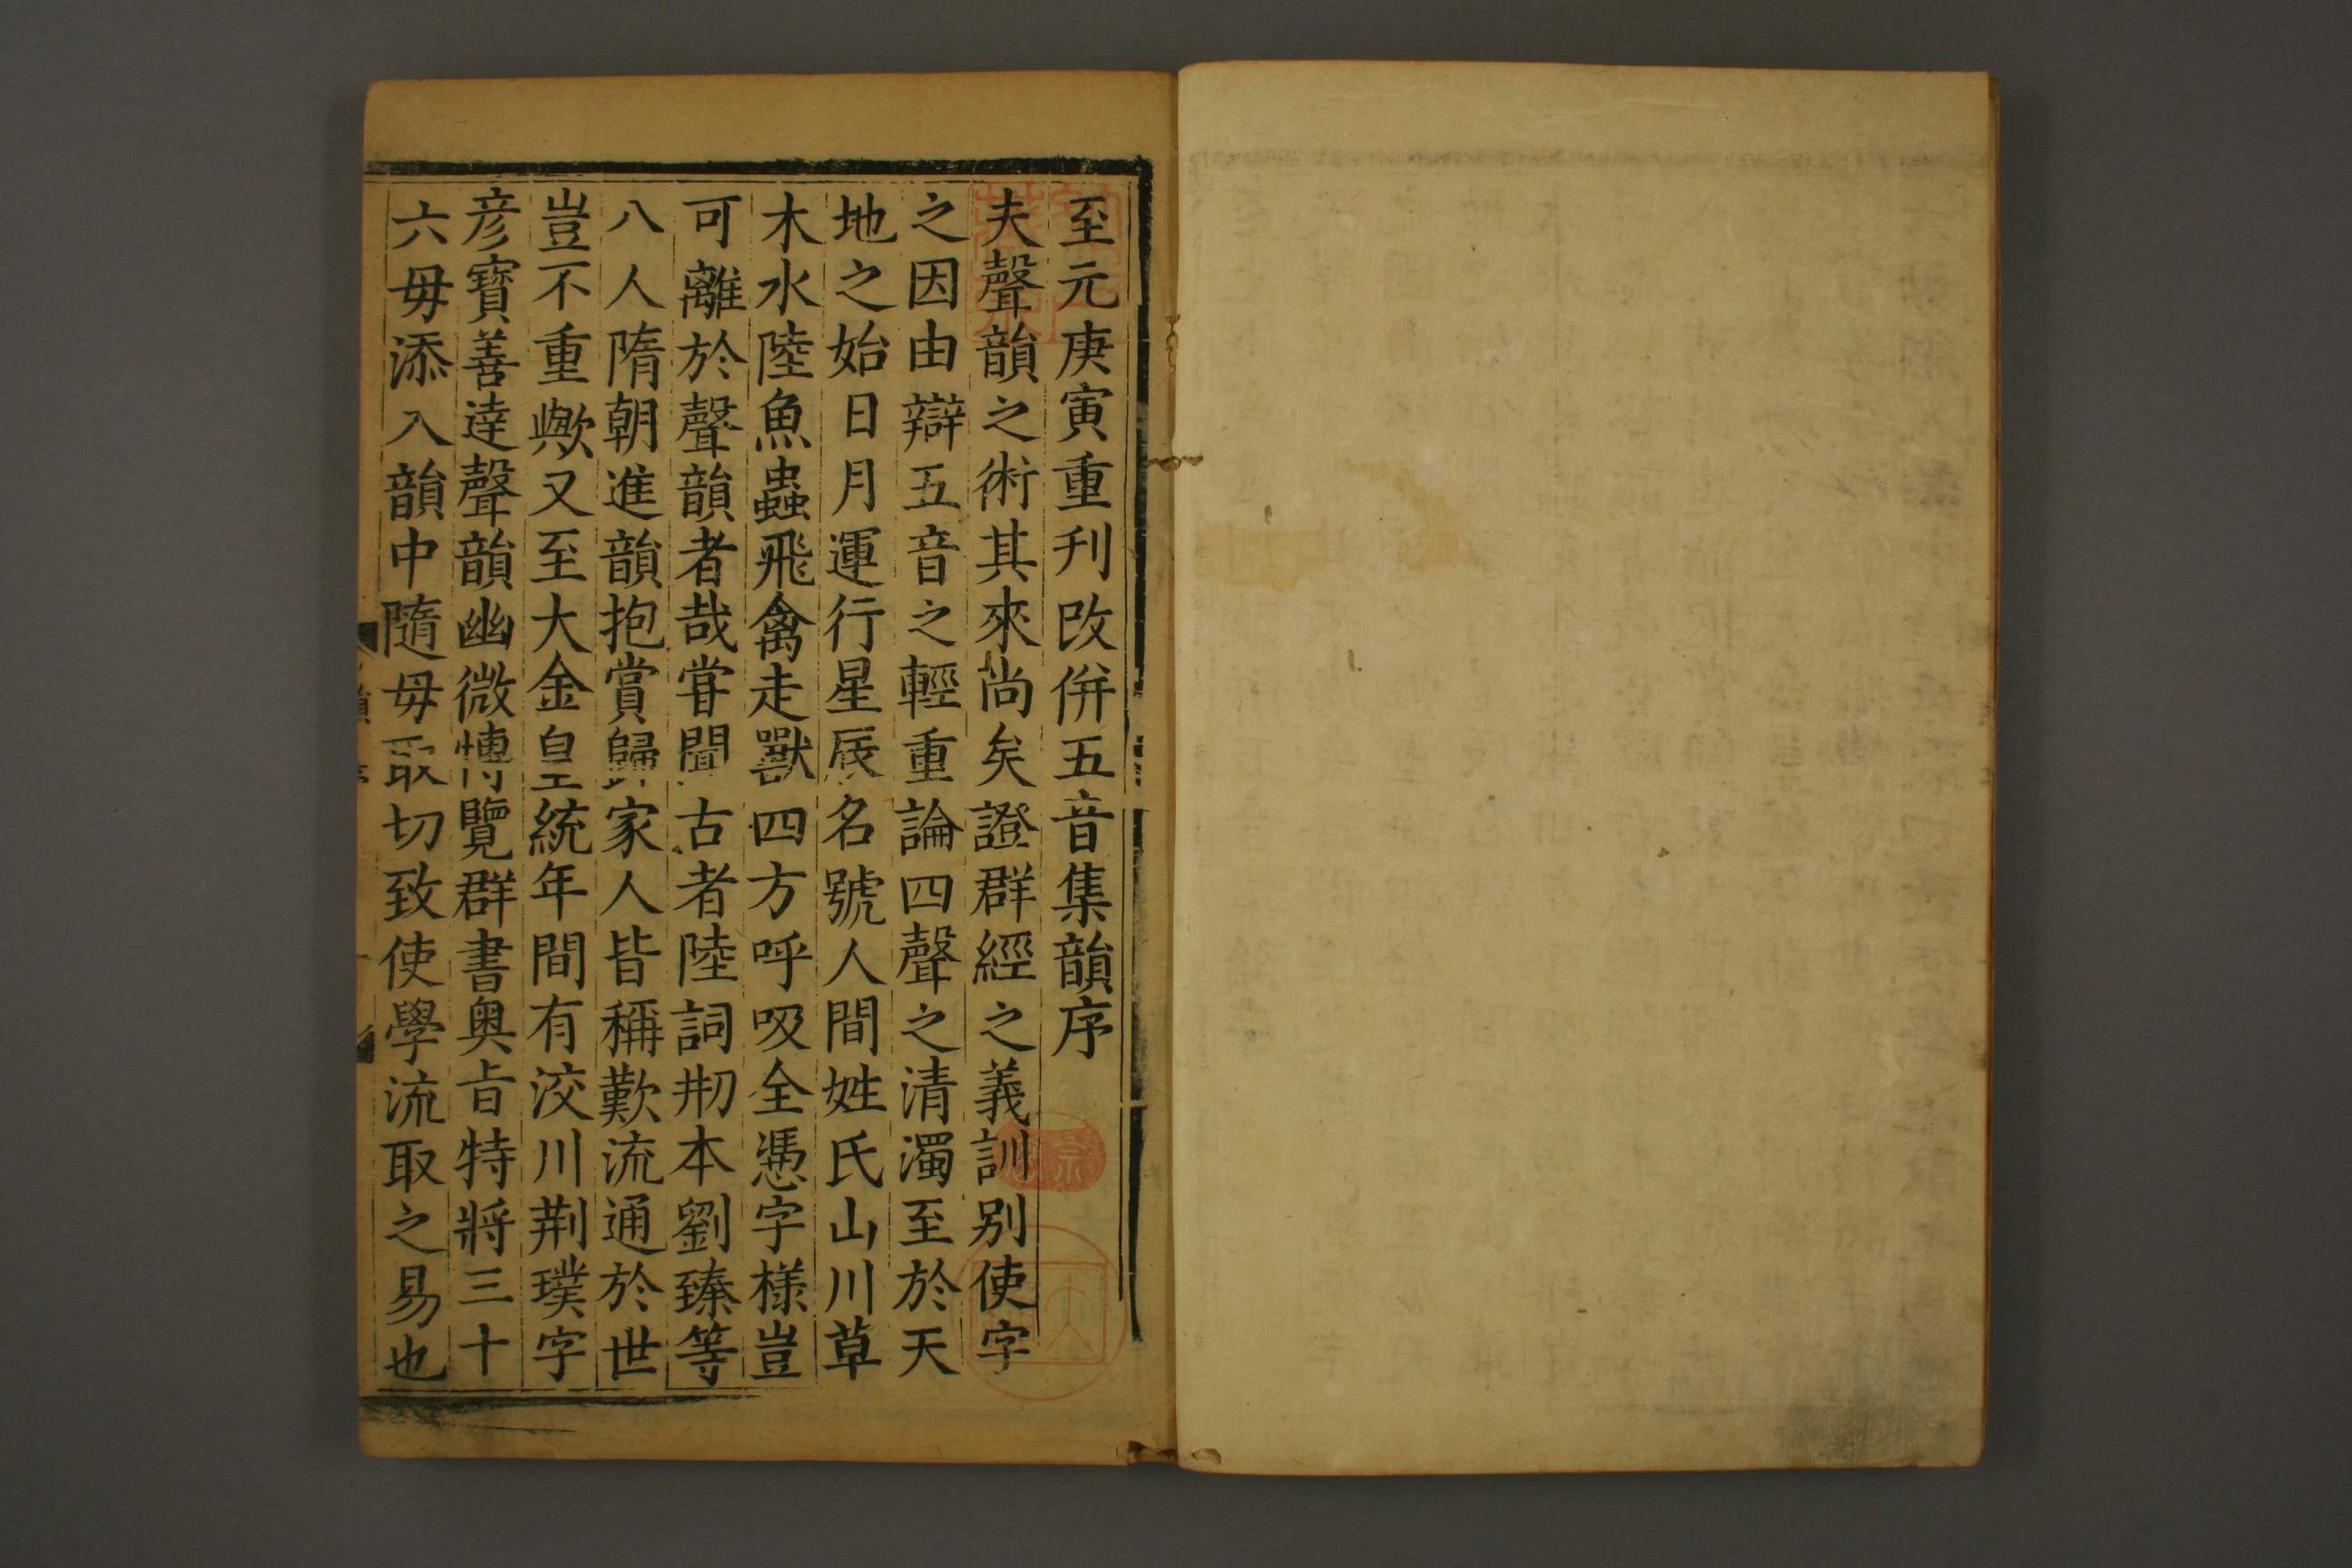 至元庚寅重刊改併五音集韻序
夫聲韻之術其來尚矣證群經之義訓别使字
之因由辯五音之輕重論四聲之清濁至於天
地之始日月運行星辰名號人間姓氏山川草
木水陸魚蟲飛禽走獸四方呼吸全憑字樣豈
可離於聲韻者哉甞聞古者陸詞刱本劉臻等
八人隋朝進韻抱賞歸家人皆稱歎流通於世
豈不重歟又至大金皇統年間有洨川荆璞字
彦寶善達聲韻幽微博覽群書奥㫖特將三十
六毋添入韻中隨毋取切致使學流取之易也